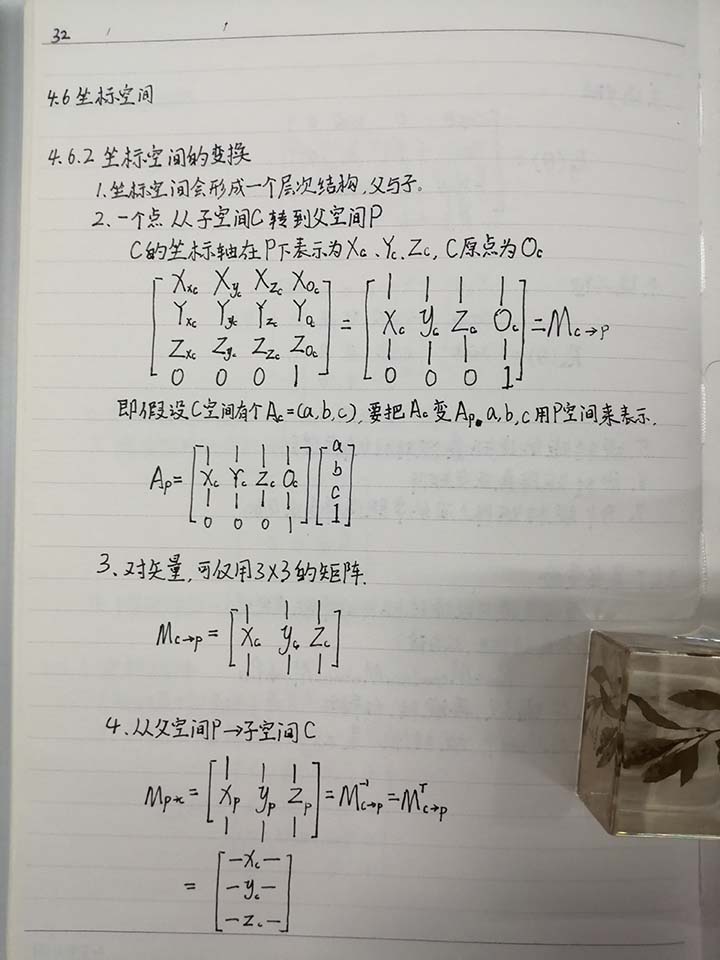 32
4.6 坐标空间
4.6.2 坐标空间的变换
1.坐标空间会形成一个层次结构,父与子。
2、一个点从子空间C转到父空间P
C的坐标轴在P下表示为Xc、Yc、Zc, C原点为Oc
[Xxc Xyc Xzc XOc
Yxc Yyc Yzc YOc
Zxc Zyc Zzc ZOc
0 0 0 1]
=
[| | | |
Xc yc Zc Oc
| | | |
0 0 0 1]
=Mc→p
即假设C空间有个Ac=(a,b,c),要把Ac变Ap。a,b,c用P空间来表示.
Ap=
[| | | |
Xc Yc Zc Oc
| | | |
0 0 0 1]
[a
b
c
1]
3、对矢量,可仅用3X3的矩阵.
Mc→p =
[| | |
Xc yc Zc
| | |]
4、从父空间P→子空间C
Mp→c =
[| | |
Xp yp Zp
| | |]
= M⁻¹c→p = Mᵀc→p
=
[—Xc—
—yc—
—Zc—]